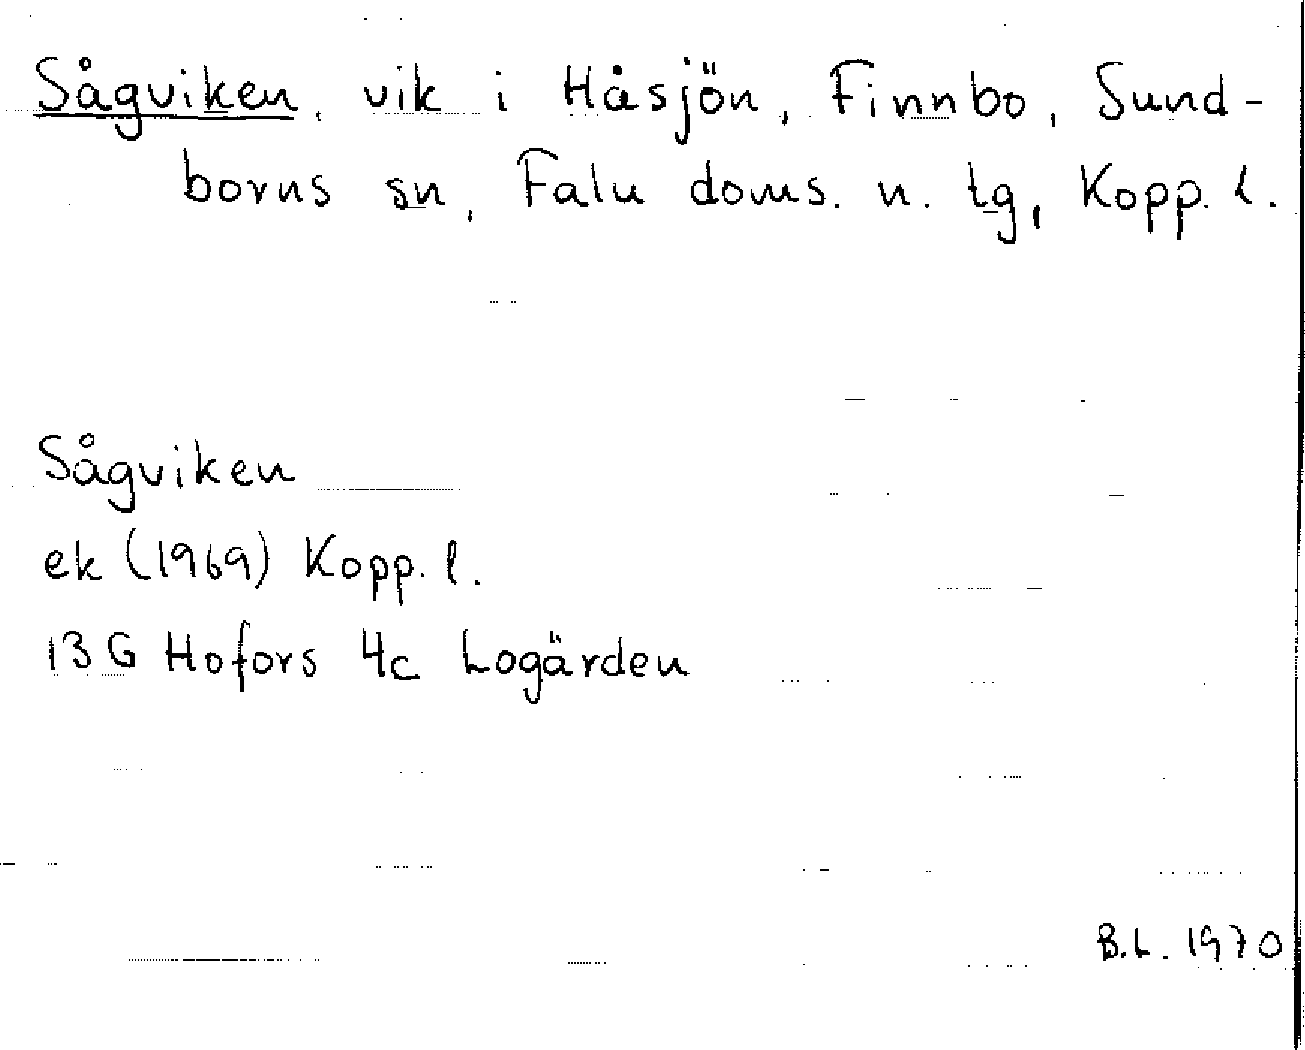 Sågviken, vik i Håsjön, Finnbo, Sund-
borns sn, Falu doms. n. tg, Kopp. l.
Sågviken
ek (1969) Kopp. l.
13 G Hofors 4c Logärden
B.L. 1970